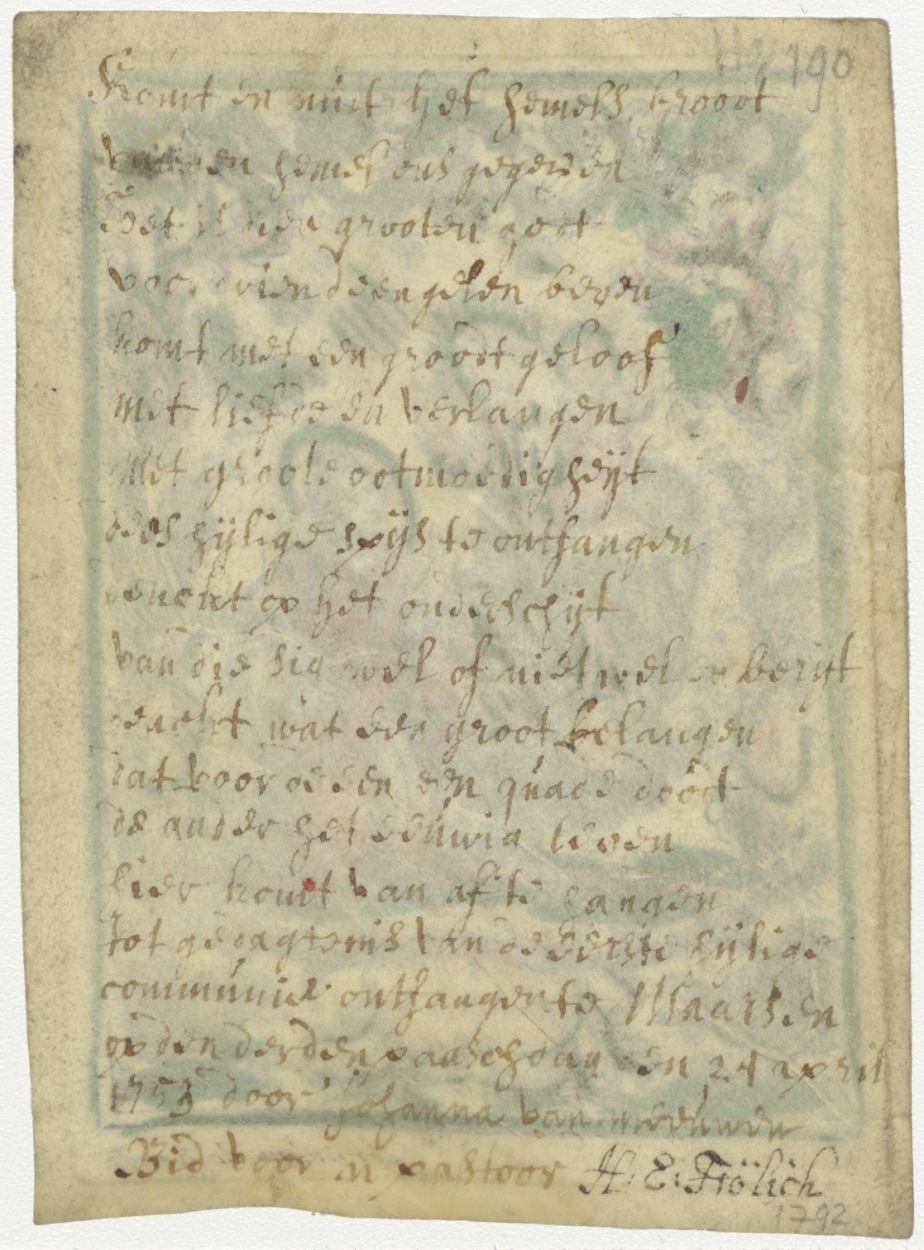 190
Komt en nút het hemels broodt
van den hemel ons gegeven
Het is den grooten godt
voor vrienden gelen beven
komt met een groodt geloof
met liefde en verlangen
Met groote ootmoedigheijt
dees hijlige spijs te onthangen
denckt op het onderschijt
van die sig wel of niet wel en berijt
denckt wat een groot belangen
dat voor de een een quade doodt
de ander het eeuwig leven
hier komt van af te hangen
tot gedagtenis van de eerste hijlige
communie onthangen te Maarsen
op den derden paaschdag den 24 april
1753 door Johanna van meeuwen
Bid voor n pastoor H. E. Frölich
1792